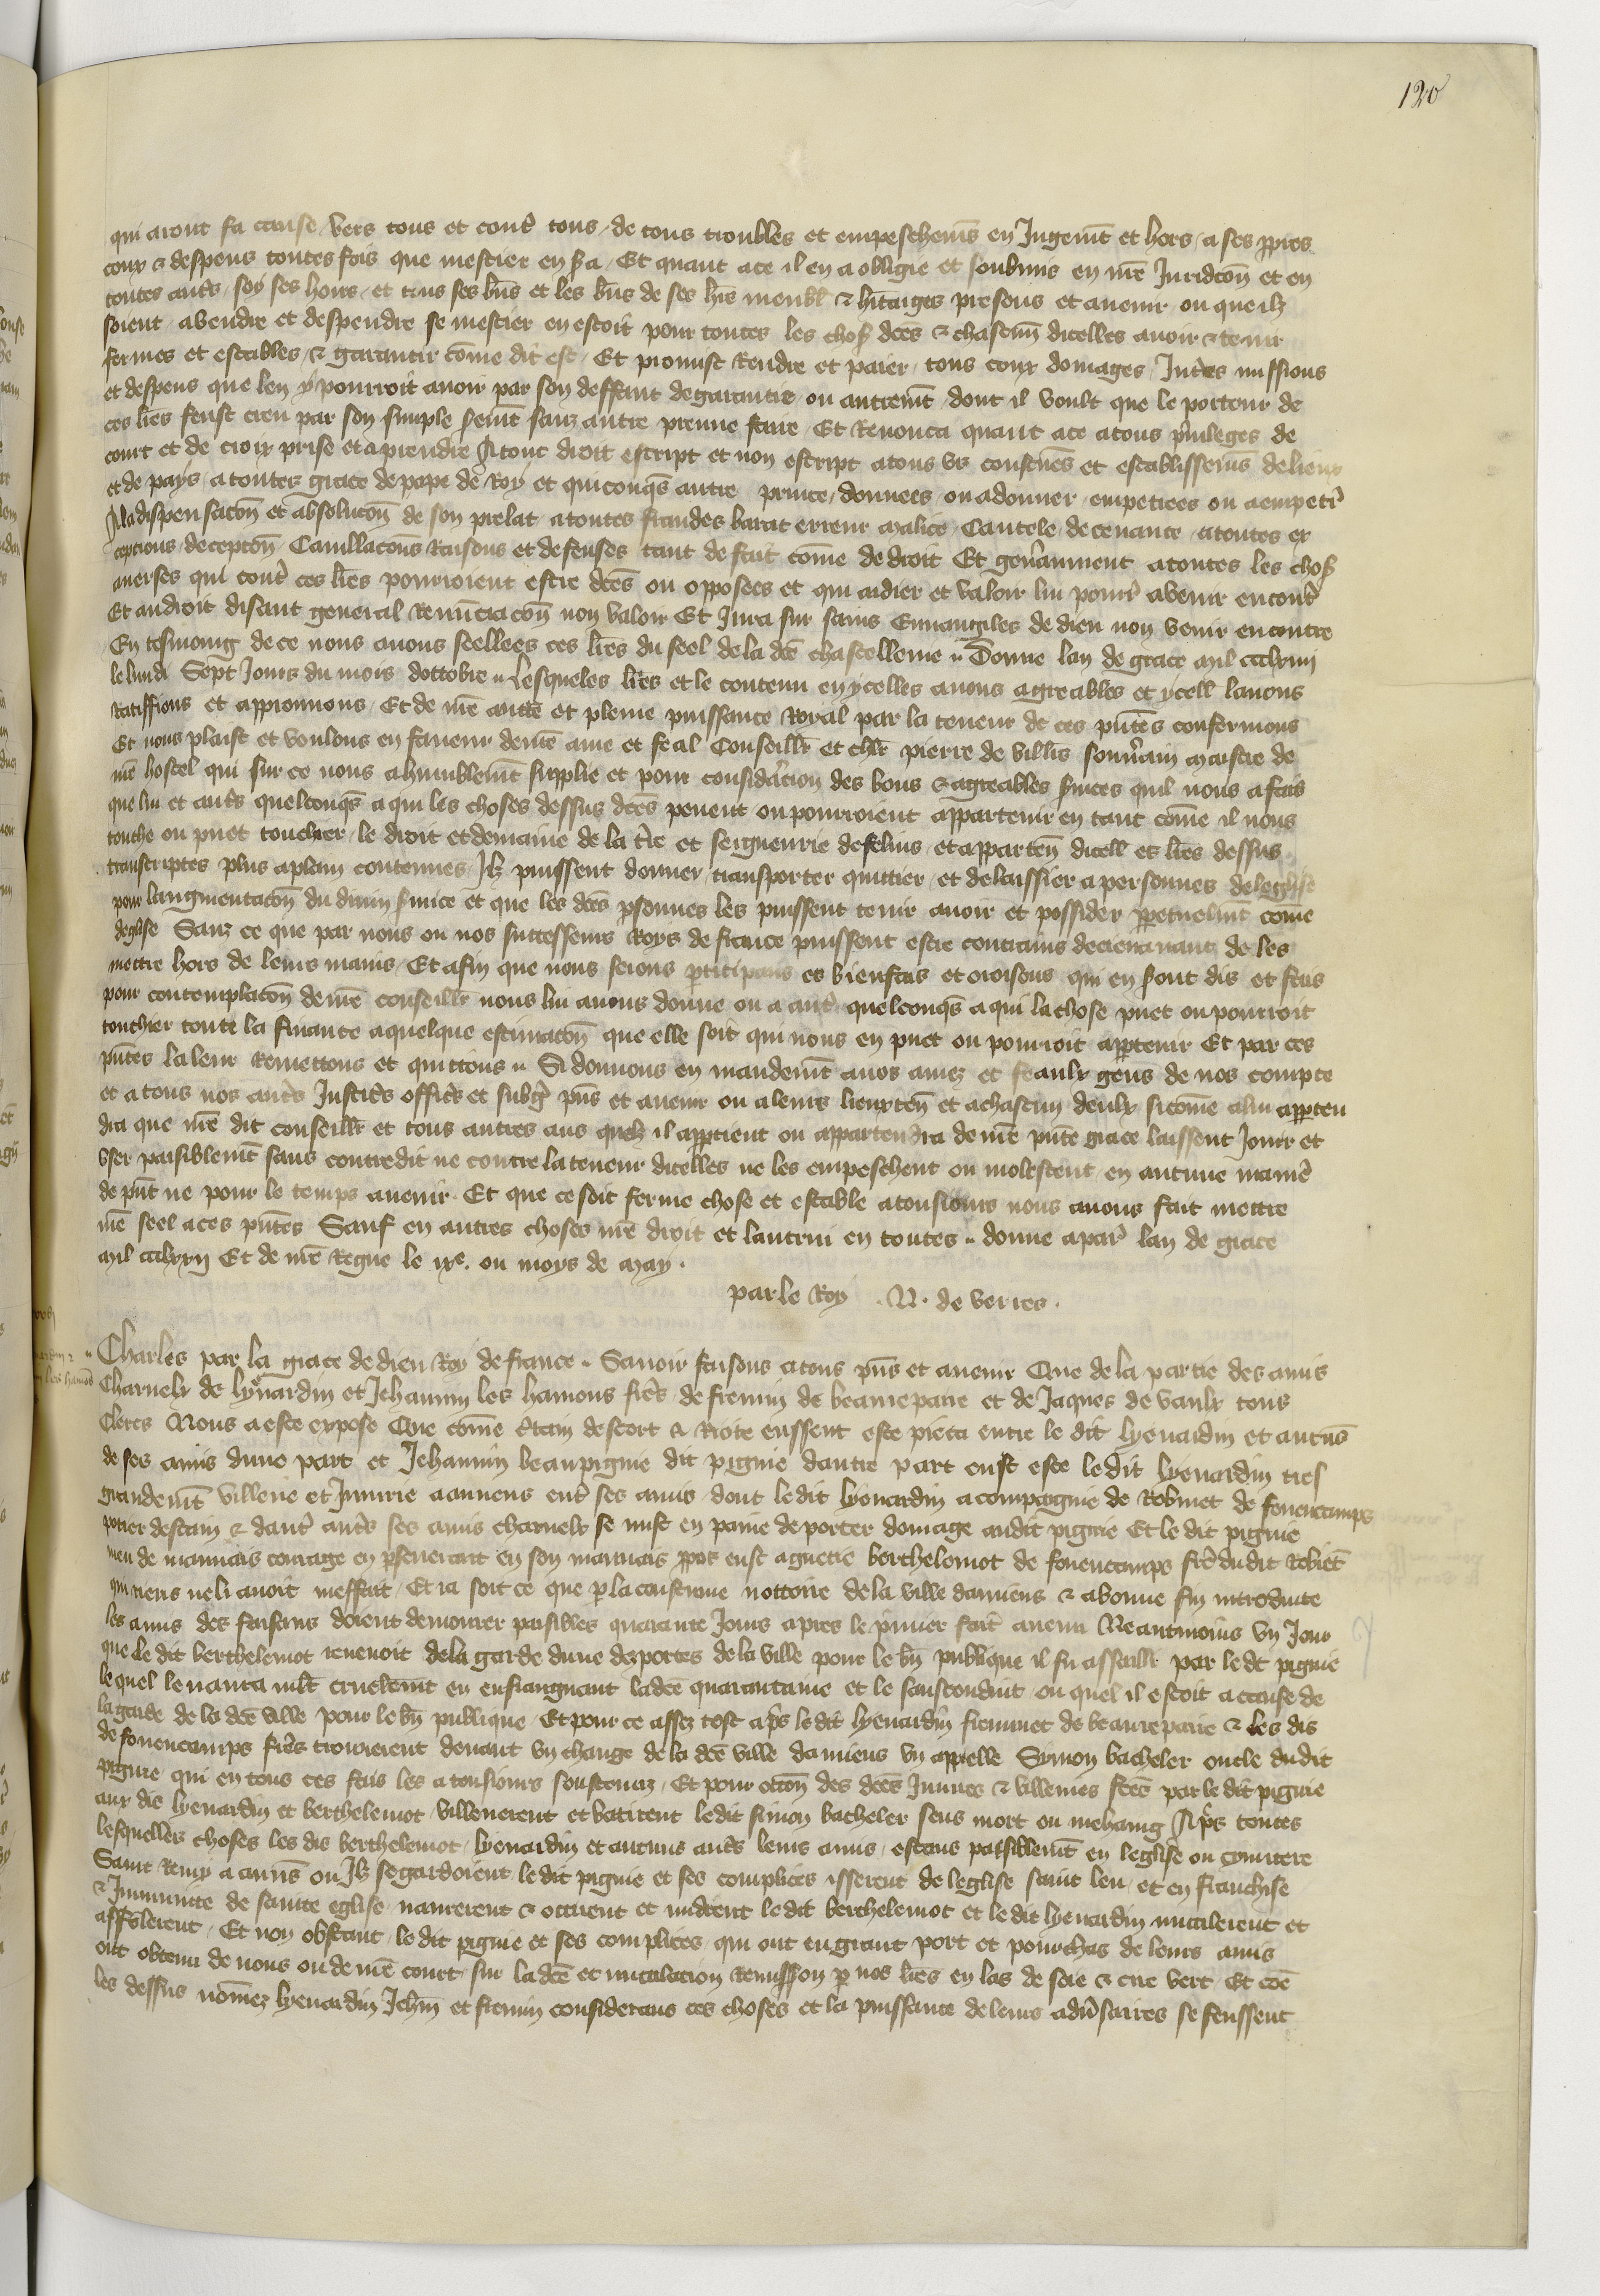 120
qui aront sa cause vers tous et contr̃ tous de tous troubles et empeschem̃s en Jugem̃t et hors a ses ppres
coux & despens toutes fois que mestier en sa Et quant ace il en a obligie et soubmis en nr̃e Juridicõn et en
toutes autr̃s soy ses hoirs et tous ses biẽs et les biẽs de ses hr̃s meubl̃ & hr̃itaiges presens et avenir ou que ilz
soient a vendre et despendre se mestier en estoit pour toutes les chos̃ dc̃es & chascun̄ dicelles avoir & tenir
fermes et estables & garantir cõme dit est Et promist Rendre et paier tous coux domages Int̃es missions
et despens que len y pourroit avoir par son deffaut de garantie ou autrem̃t dont il voult que le porteur de
ces lr̃es feust creu par son simple serem̃t sanz autre preuve faire Et Renonca quant ace a tous privileges de
court et de croix prise et a prendre A tout droit escript et non escript a tous us coustum̃es et establissem̃s de lieux
et de pays a toutes grace de pape de Roy et quiconqs̃ autre prince donnees ou a donner empetrees ou a empetr̃
A la dispensacõn et absolucõn de son prelat a toutes fraudes barat erreur malice Cautele decevance a toutes ex
cepcions decepcõn Cavillacõns Raisons et defenses tant de fait cõme de droit Et gen̄aument a toutes les chos̃
averses qui contr̃ ces lr̃es pourroient estre dc̃es ou opposees et qui aidier et valoir lui pourr̃ avenir encontr̃
Et au droit disant general Renunciacõn non valoir Et Jura sur sains Euuangiles de dieu non venir encontre
En tesmoing de ce nous avons seellees ces lr̃es du seel de la dc̃e chastellenie Donne lan de grace mil
le lundi Sept Jours du mois doctobre Lesqueles lr̃es et le contenu en ycelles avons agreables et ycell̃ lavons
Ratiffions et approuuons Et de nr̃e auctẽ et pleine puissance Royal par la teneur de ces pñtes confermons
Et nous plaist et voulons en faveur de nr̃e ame et feal Conseillr̃ et chlr̃ pierre de villr̃s souvr̃ain maistre de
nr̃e hostel qui sur ce nous a humblem̃t supplie et pour considr̃acion des bons & agreables s̃uices quil nous a fais
que lui et autr̃s quelconqs̃ a qui les choses dessus dc̃es peuent ou pourroient appartenir en tant cõme il nous
touche ou puet touchier le droit et demaine de la tr̃re et seigneurie de selins et apparteñ dicell̃ es lr̃es dessus
transcriptes plus aplain contenues Ilz puissent donner transporter quittier et delaissier a personnes deleglise
pour laugmentacõn du divin s̃uice et que les dc̃es p̃sonnes les puissent tenir avoir et possider ppetuelm̃t cõme
deglise Sanz ce que par nous ou nos successeurs Roys de france puissent estre contrains dorenavant de les
mettre hors de leurs mains Et afin que nous seions p̃ticipans es bienfais et oroisons qui en sont dis et fais
pour contemplacõn de nr̃e conseillr̃ nous lui avons donne ou a autr̃ quelconqs̃ a qui la chose puet ou pourroit
touchier toute la finance a quelque estimacõn que elle soit qui nous en puet ou pourroit appartenir Et par ces
pñtes la leur Remettons et quittons Si donnons en mandem̃t a nos amez et feaulx gens de nos compte
et a tous nos autr̃s Justicr̃s officr̃s et subgr̃ pñs et avenir ou a leurs lieuxteñ et a chascun deulx sicõme a lui apparten
dra que nr̃e dit conseillr̃ et tous autres aus quelz il appartient ou appartendra de nr̃e pñte grace laissent Jouir et
user paisiblem̃t sans contredit ne contre la teneur dicelles ne les empeschent ou molestent en aucune manir̃e
de pñt ne pour le temps avenir Et que ce soit ferme chose et estable a tousiours nous avons fait mettre
nr̃e seel a ces pñtes Sauf en autres choses nr̃e droit et lautrui en toutes donne a parr̃ lan de grace
mil Et de nr̃e Regne le ixe. ou moys de may.
par le Roy .N. de verres.
Charles par la grace de dieu Roy de france Savoir faisons a tous pñs et avenir Que de la partie des amis
Charnelx de Lyenardin et Jehannin les hamons frer̃s de fremin de beaurepaire et de Jaques de vaulx tous
Clercs Nous a este expose Que cõme cr̃tain descort & Riote eussent este pieca entre le dit Lyenardin et aucũs
de ses amis dune part et Jehannin beaupignie dit pignie dautre part eust este le dit Lyenardin tres
grandem̃t villene et Iniurie a amiens entr̃ ses amis dont ledit lyenardin acompaignie de Robinet de fouencamps
potier destain & dautr̃ autr̃s ses amis charnelx se mist en paine de porter domage audit pignie Et le dit pignie
meu de mauvais courage en p̃severant en son mauvais ppos eust aguetie berthelemot de fouencamps frer̃ dudit Robiñt
qui riens ne li avoit meffait Et ia soit ce que p̃ la coustume nottoire de la ville damiens & a bonne fin introduite
les amis des faiseurs doient demourer paisibles quarante Jours apres le p̃mier fait avenu Neantmoins un Jour
que le dit berthelemot revenoit dela garde dune des portes de la ville pour le bñ publique il fu assailli par le dt̃ pignie
lequel le navra mlt̃ cruelem̃t en enfraignant ladc̃e quarantaine et le saufconduit ou quel il estoit a cause de
la garde de la dc̃e ville pour le bñ publique Et pour ce assez tost apr̃s ledit Lyenardin freminet de beaurepaire & les dis
de fouencamps frer̃s trouverent devant un change de la dc̃e ville damiens un appelle Symon bacheler oncle dudit
pignie qui en tous ces fais les a tousiours soustenuz Et pour occõn des dc̃es Iniures & villenies fcẽs par le dit pignie
aux dis lyenardin et berthelemot villenerent et batirent ledit simon bacheler sens mort ou mehaing Apr̃s toutes
lesquelles choses les dis berthelemot lyenardin et aucuns autr̃s leurs amis estans paisiblem̃t en leglise ou cimitere
Saint Remy a amiẽs ou Ilz se gardoient le dit pignie et ses complices isserent de leglise saint leu et en franchise
& Immunite de saincte eglise navrerent & occirent et mirent ledit berthelemot et le dit lyenardin mutilerent et
affolerent Et non obstant le dit pignie et ses complices qui ont en grant port et pourchas de leurs amis
ont obtenu de nous ou de nr̃e court sur la dc̃e et mutilacion Remission p̃ nos lr̃es en las de soie & cire vert Et cõe
les dessus nõmez lyenardin Jeh̃m et fremin considerans ces choses et la puissance de leurs adṽsaires se feussent